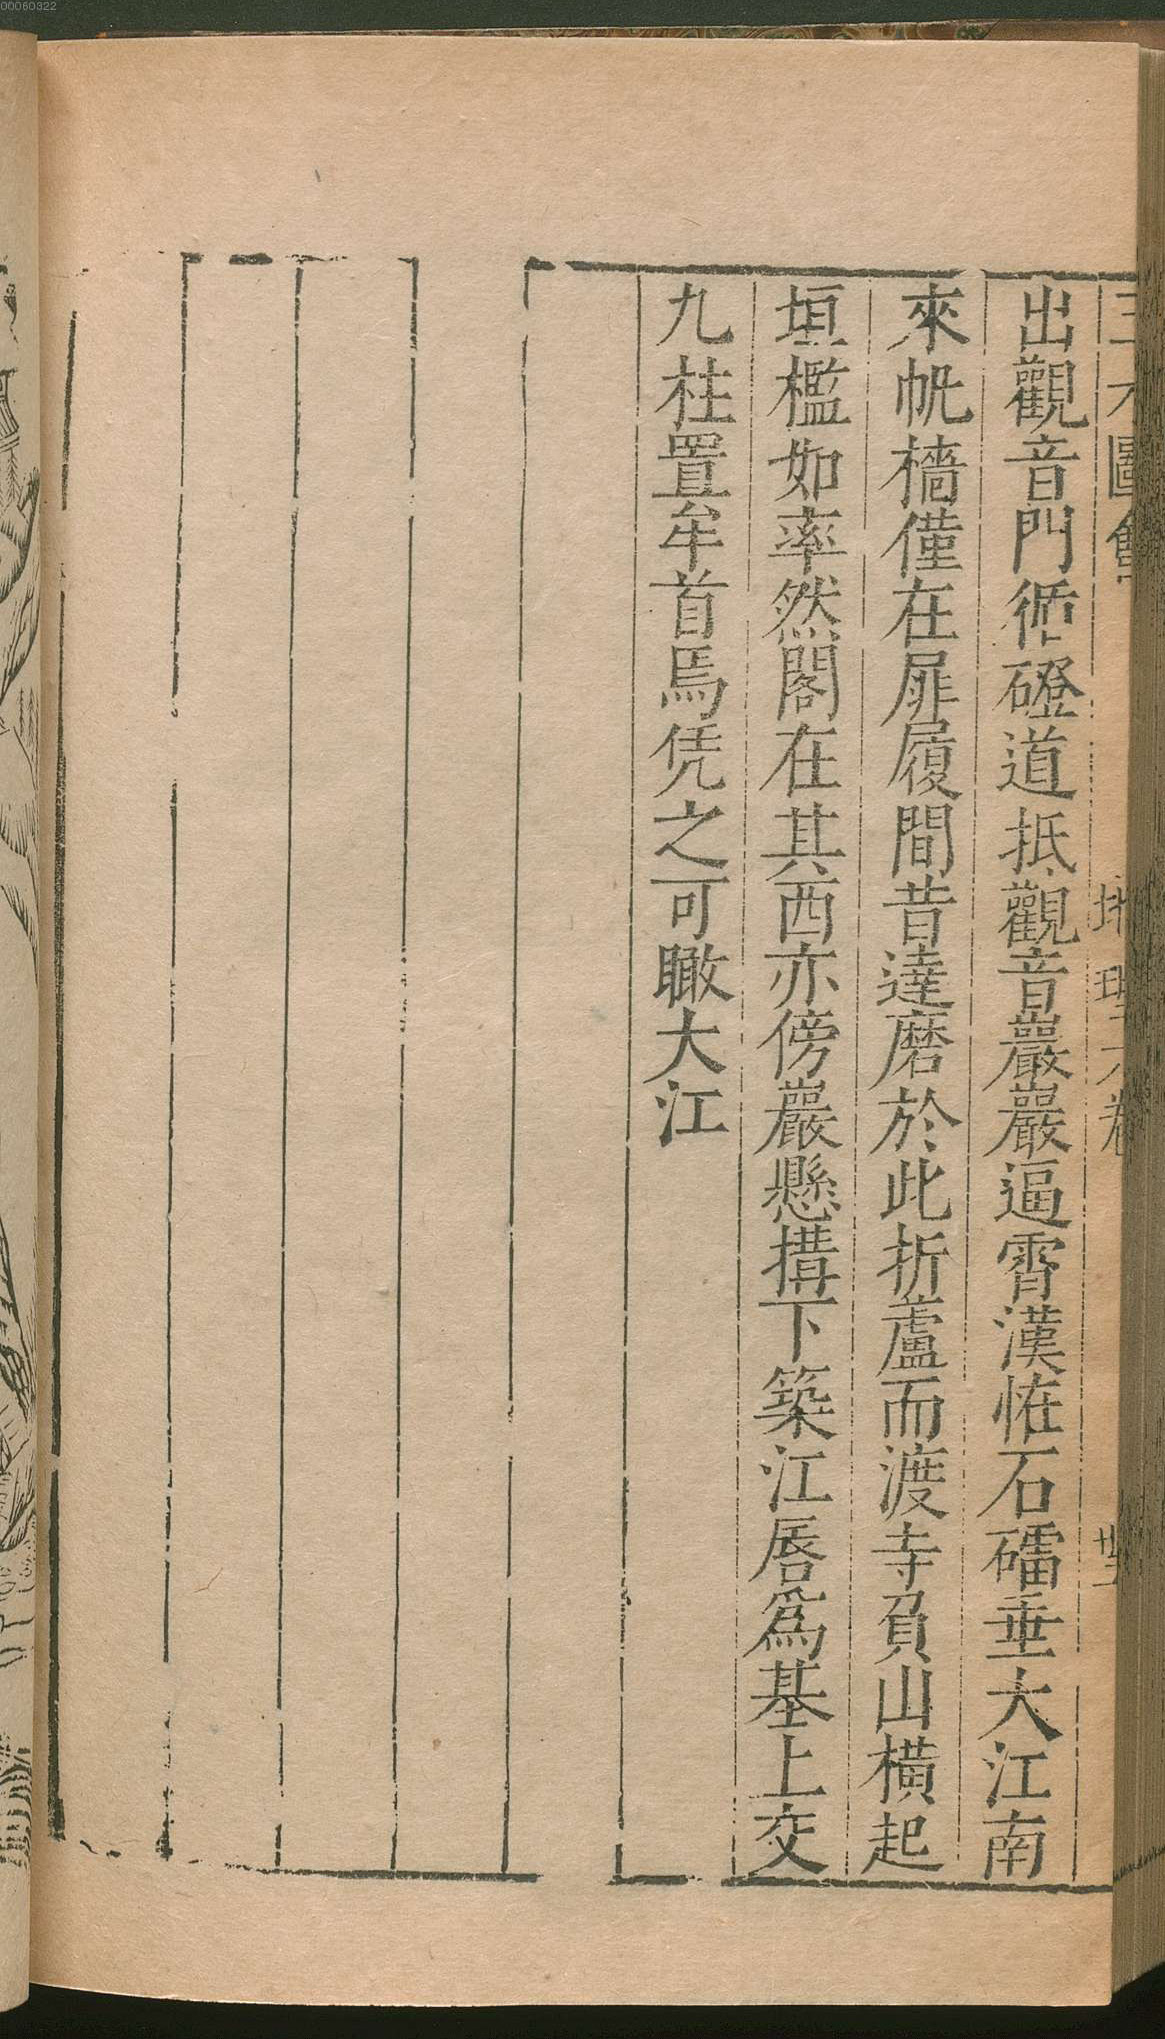 00060322
三才圖會 地理六卷
出觀音門循磴道抵觀音巖巖逼霄漢恠石礌垂大江南
來帆檣僅在屝履間昔達磨於此折蘆而渡寺負山橫起
垣檻如率然閣在其西亦傍巖懸搆下築江唇爲基上交
九柱置牟首焉凭之可瞰大江